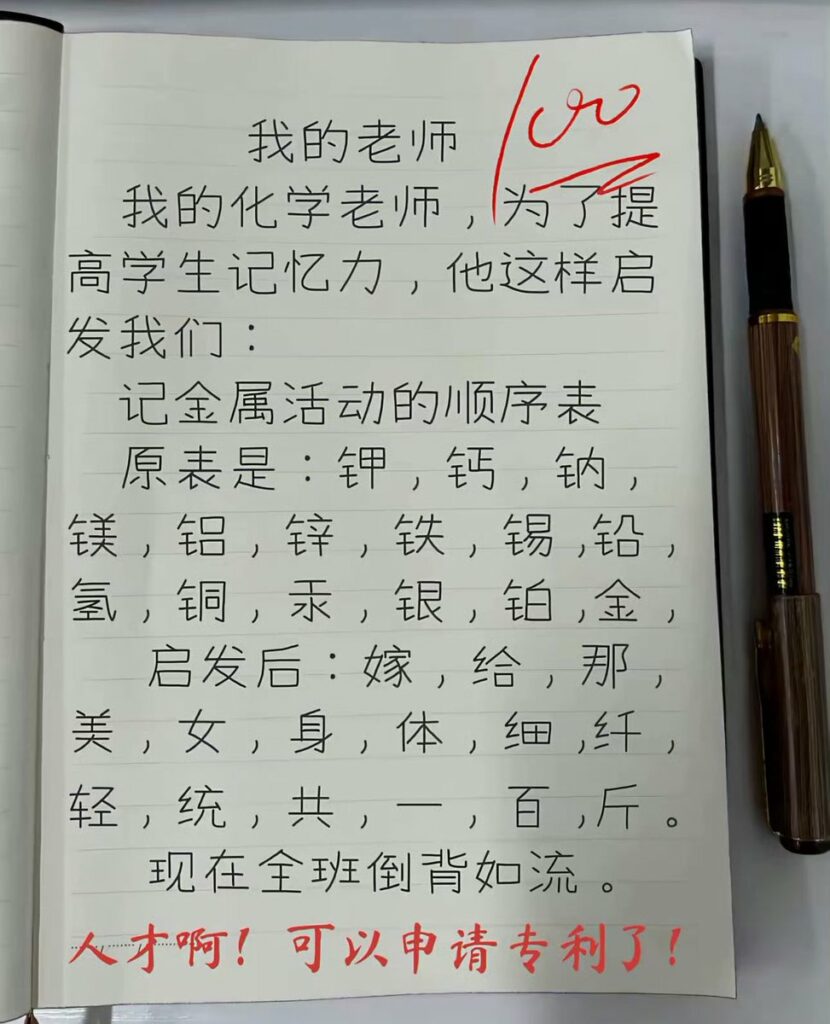 我的老师
100
我的化学老师，为了提
高学生记忆力，他这样启
发我们：
记金属活动的顺序表
原表是：钾，钙，钠，
镁，铝，锌，铁，锡,铅，
氢，铜，汞，银，铂,金，
启发后：嫁，给，那，
美，女，身，体，细,纤，
轻，统，共，一，百,斤。
现在全班倒背如流。
人才啊！可以申请专利了！